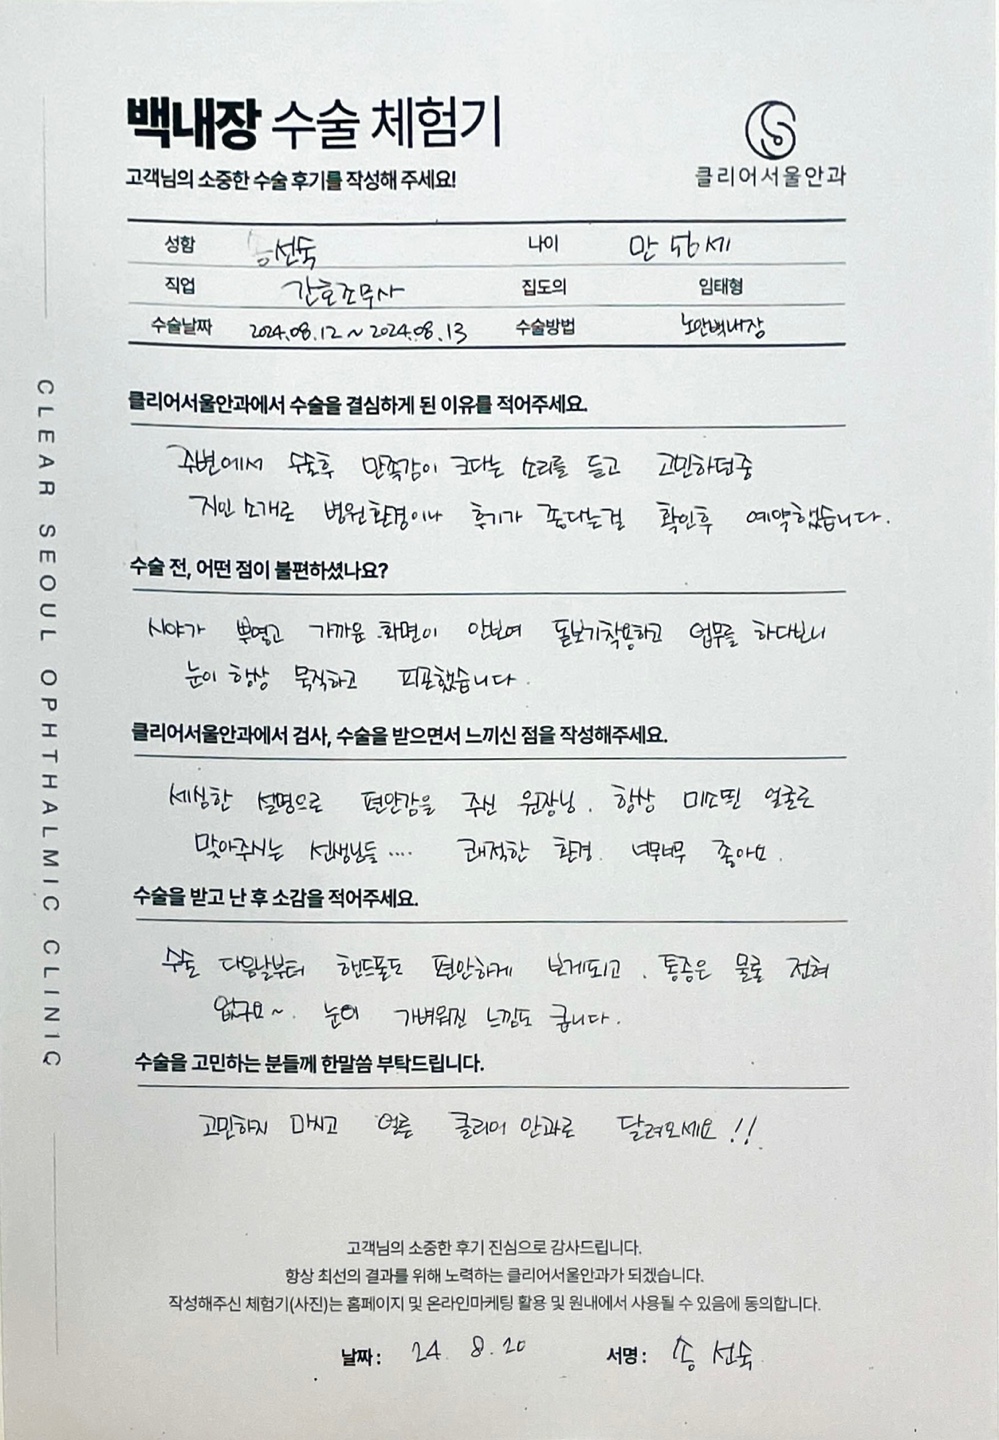 백내장 수술 체험기
고객님의 소중한 수술 후기를 작성해 주세요!
클리어서울안과
성함 송선숙 나이 만 56세
직업 간호조무사 집도의 임태형
수술날짜 2024.08.12 ~ 2024.08.13 수술방법 노안백내장
CLEAR SEOUL OPHTHALMIC CLINIC
클리어서울안과에서 수술을 결심하게 된 이유를 적어주세요.
주변에서 수술후 만족감이 크다는 소리를 듣고 고민하던중
지인 소개로 병원환경이나 후기가 좋다는걸 확인후 예약했습니다.
수술 전, 어떤 점이 불편하셨나요?
시야가 뿌옇고 가까운 화면이 안보여 돋보기착용하고 업무를 하다보니
눈이 항상 묵직하고 피곤했습니다.
클리어서울안과에서 검사, 수술을 받으면서 느끼신 점을 작성해주세요.
세심한 설명으로 편안감을 주신 원장님. 항상 미소띤 얼굴로
맞아주시는 선생님들 .... 쾌적한 환경. 너무너무 좋아요.
수술을 받고 난 후 소감을 적어주세요.
수술 다음날부터 핸드폰도 편안하게 보게되고. 통증은 물론 전혀
없구요~. 눈이 가벼워진 느낌도 큽니다.
수술을 고민하는 분들께 한말씀 부탁드립니다.
고민하지 마시고 얼른 클리어 안과로 달려오세요 !!
고객님의 소중한 후기 진심으로 감사드립니다.
항상 최선의 결과를 위해 노력하는 클리어서울안과가 되겠습니다.
작성해주신 체험기(사진)는 홈페이지 및 온라인마케팅 활용 및 원내에서 사용될 수 있음에 동의합니다.
날짜: 24. 8. 20 서명: 송선숙